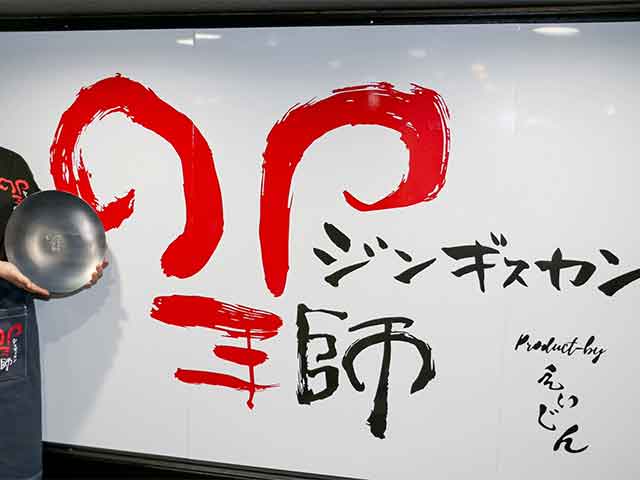 ジンギスカン
羊師
Product-by
えいじん